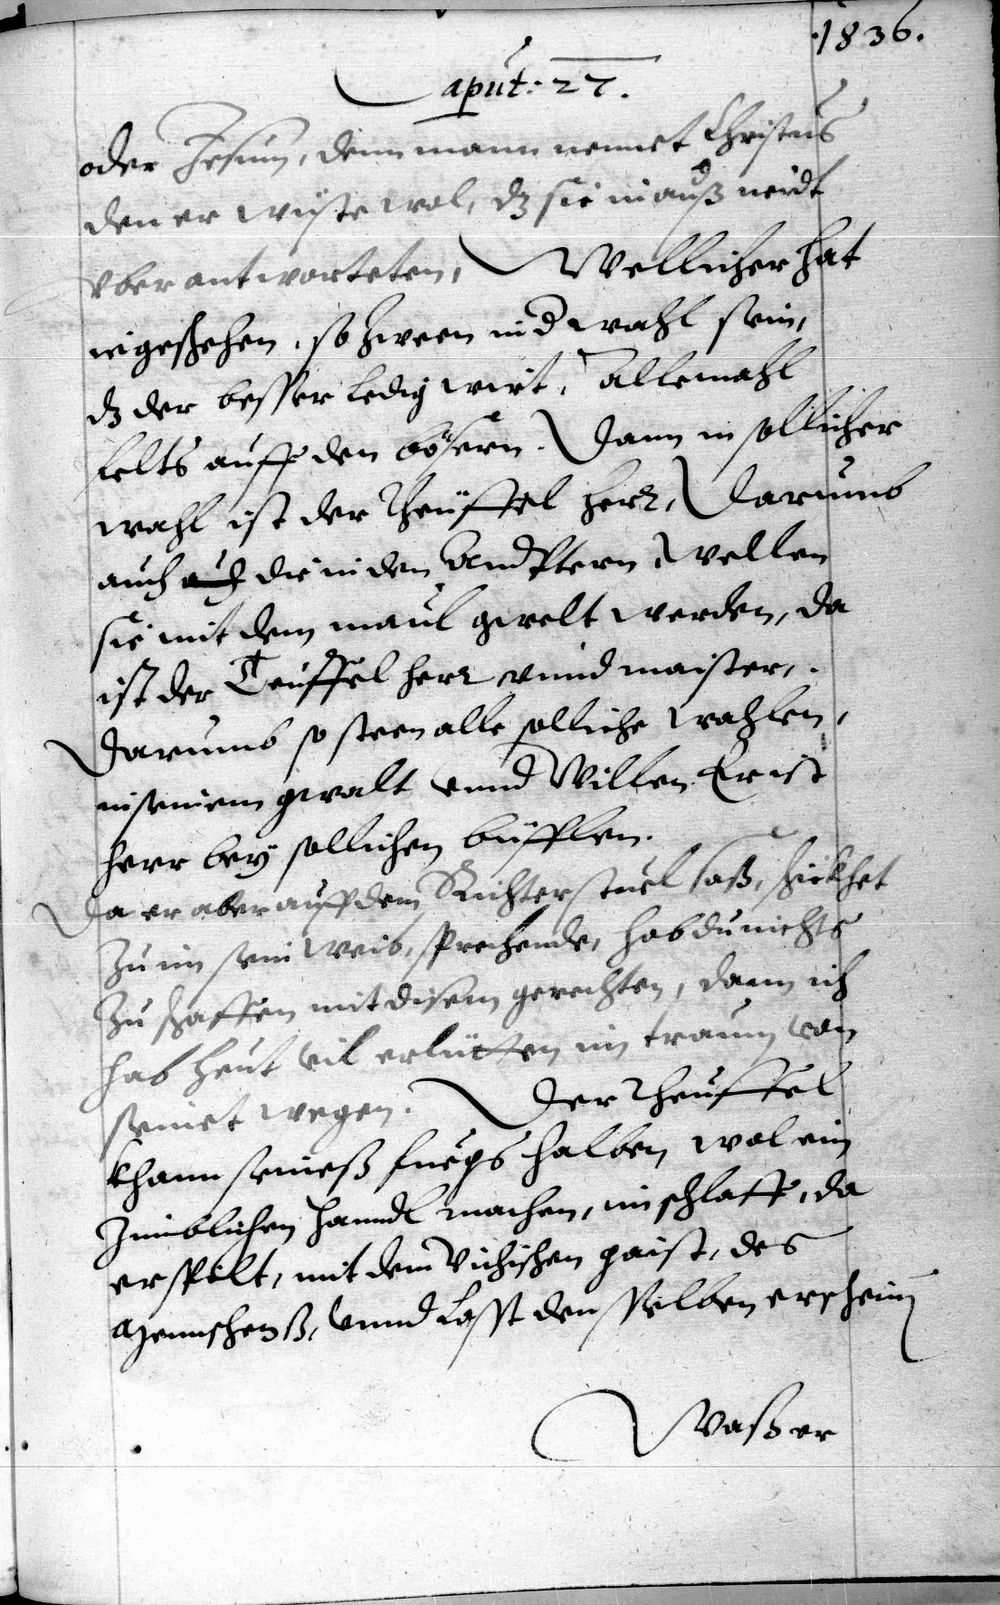 1836.
Caput: 27.
oder Jesum, denn mann nennet Christus
den er wiste wol, dz sie in auß neidt
vberantworteten, Wellicher hat
ie geschehen, so zween in d wahl sein,
dz der besser ledig wirt, Allemahl
felts auff den bösern. Dann in sollicher
wahl ist der Theüffel herr, Darumb
auch die in den Emptern wellen
sie mit dem maul gwelt werden, da
ist der Teuffel herr vnnd maister,
Darumb so steen alle solliche wahlen,
in seinem gwalt vnnd Willen Er ist
herr bey sollichen büfflen.
Da er aber auff dem Richterstuel saß, schickhet
Zu im sein weib, sprechende, hab du nichts
Zu schaffen mit disem gerechten, dann ich
hab heut vil erlütten im traum von
seinet wegen. Der Theuffel
khann seineß fuegs halben wol ein
Zimblichen hanndl machen, im schlaff, da
er spilt, mit dem Vichischen gaist, des
Mennschenß, vnnd Lasst den selben erscheinn
Waß er